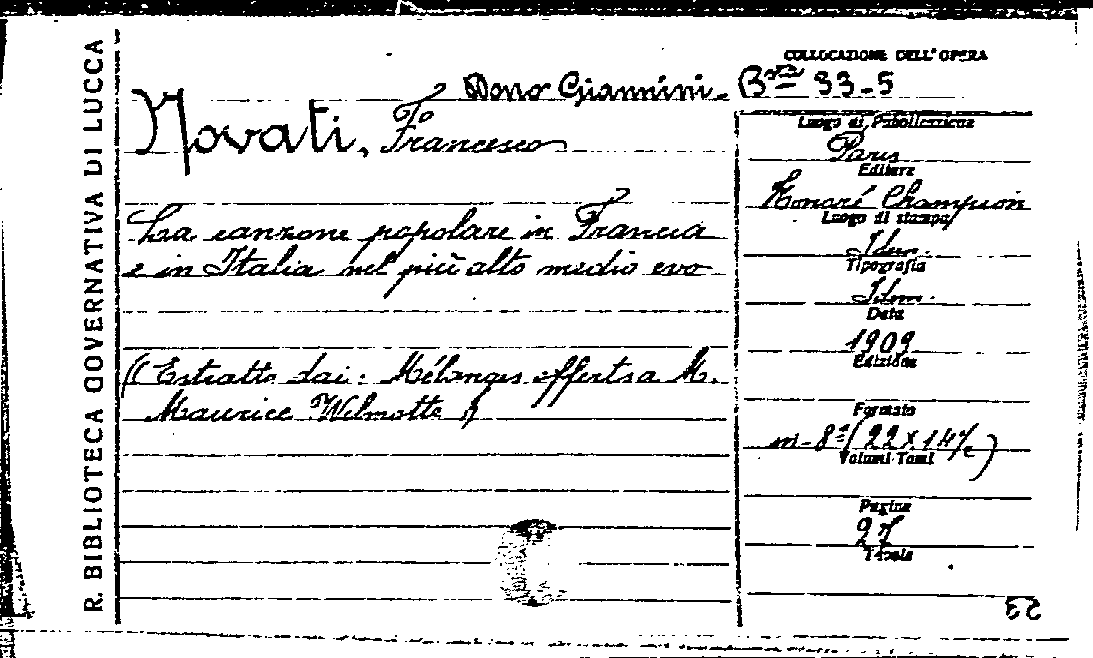 R. BIBLIOTECA GOVERNATIVA DI LUCCA
COLLOCAZIONE DELL'OPERA
Dono Giannini - 33-5
Novati, Francesco
La canzone popolare in Francia
e in Italia nel più alto medio evo
(Estratto dai: Mélanges offerts a M.
Maurice Wilmotte)
Luogo di Pubblicazione
Paris
Editore
Honoré Champion
Luogo di stampa
Idem.
Tipografia
Idem.
Data
1909
Edizione
Formato
in-8º (22×14/c)
Volumi-Tomi
Pagine
27
Tavole
23